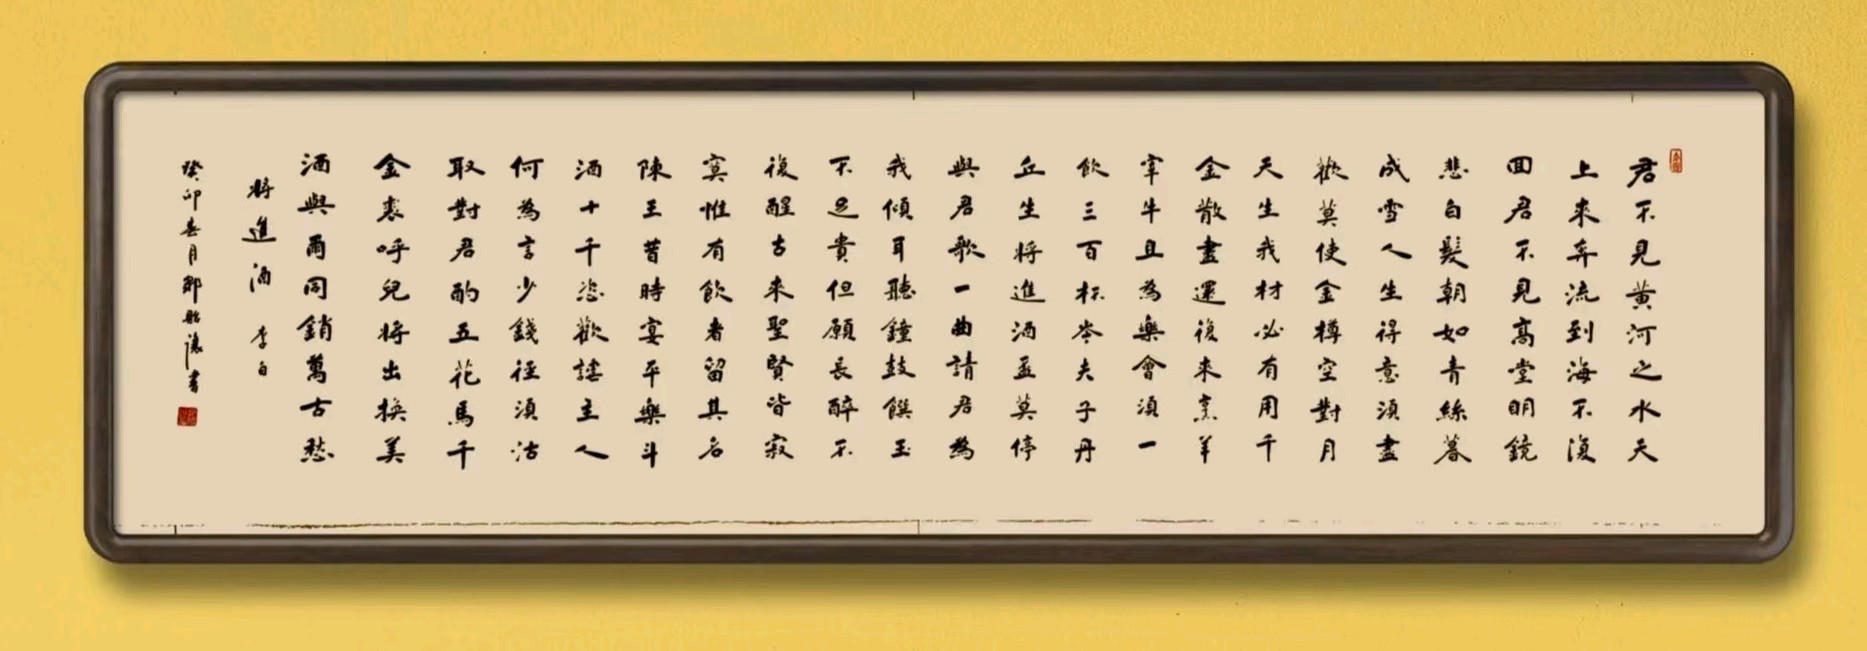 君不見黃河之水天
上來奔流到海不復
回君不見高堂明鏡
悲白髮朝如青絲暮
成雪人生得意須盡
歡莫使金樽空對月
天生我材必有用千
金散盡還復來烹羊
宰牛且為樂會須一
飲三百杯岑夫子丹
丘生將進酒盃莫停
與君歌一曲請君為
我傾耳聽鐘鼓饌玉
不足貴但願長醉不
復醒古來聖賢皆寂
寞惟有飲者留其名
陳王昔時宴平樂斗
酒十千恣歡謔主人
何為言少錢徑須沽
取對君酌五花馬千
金裘呼兒將出換美
酒與爾同銷萬古愁
將進酒 李白
癸卯春月 書